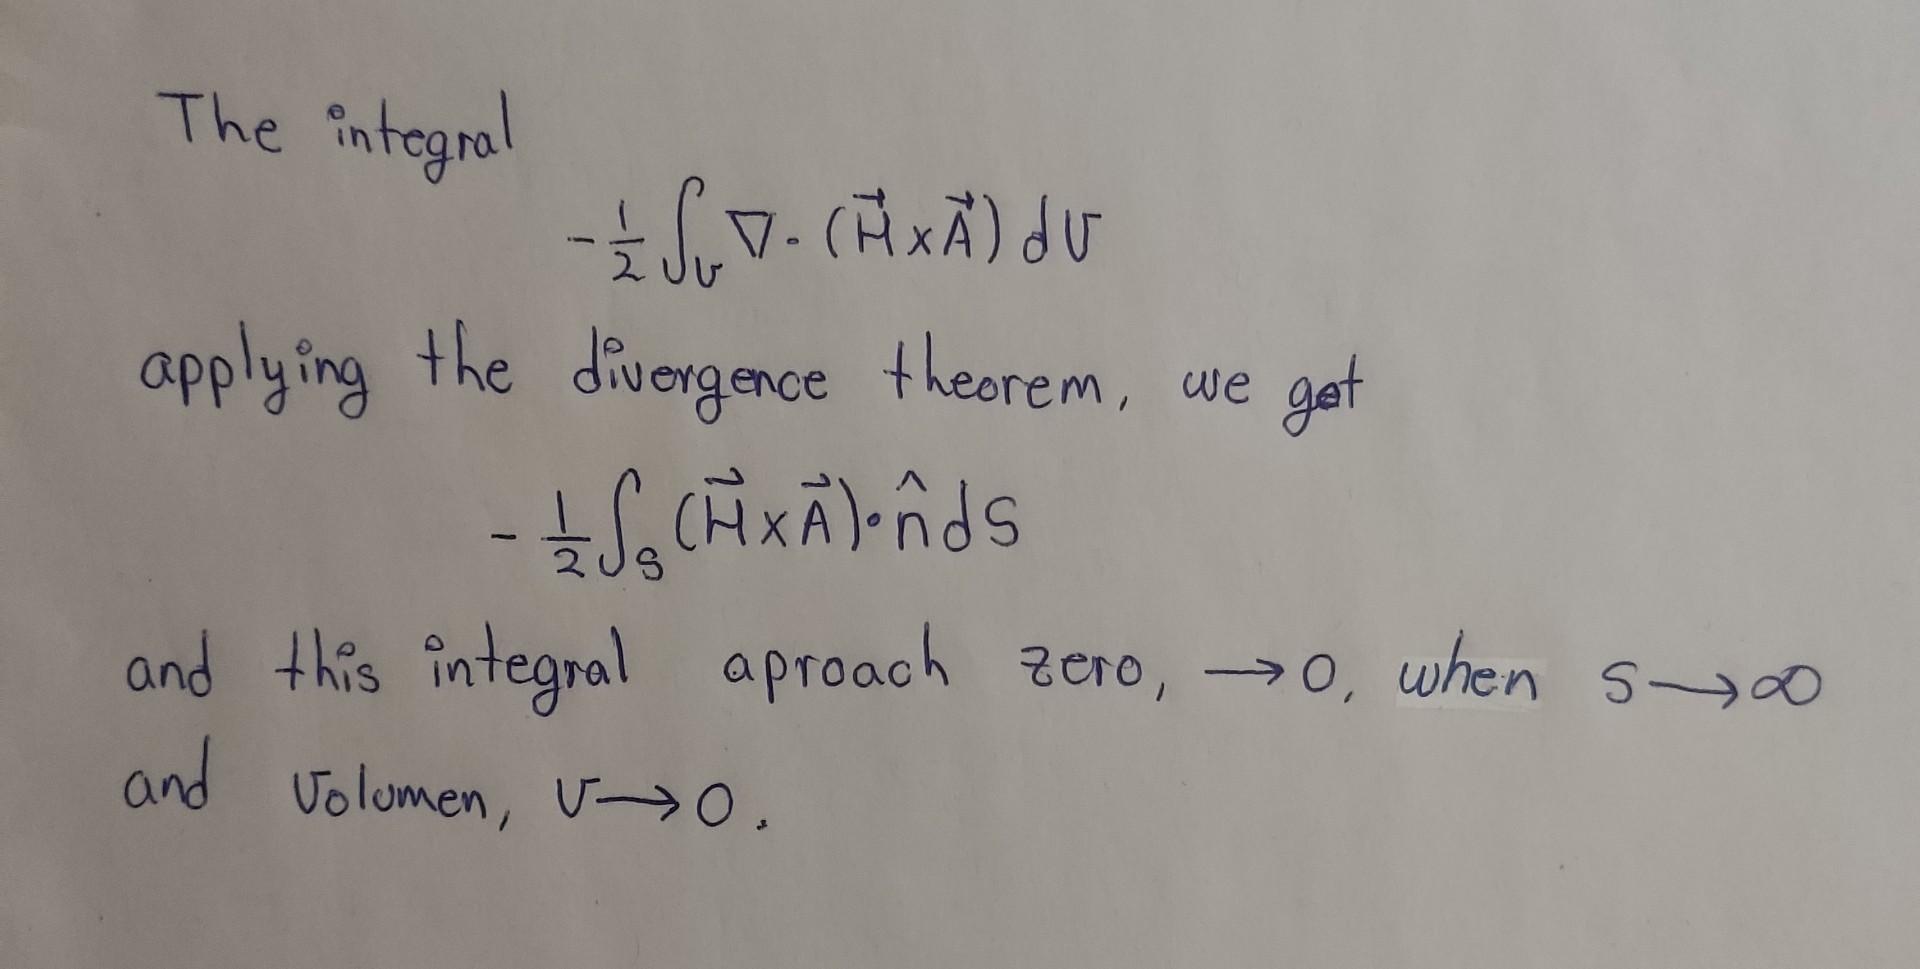 The integral
-1/2 ∫_v ∇·(H⃗×A⃗) dv
applying the divergence theorem, we get
-1/2 ∫_S (H⃗×A⃗)·n̂ dS
and this integral aproach zero, →0, when S→∞
and volumen, v→0.